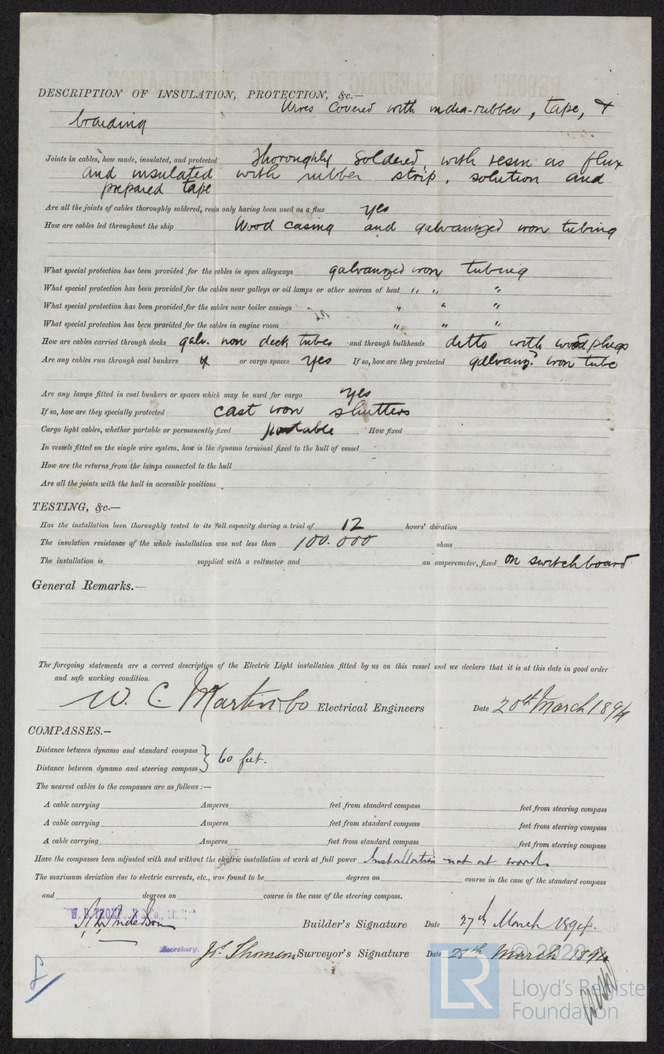 DESCRIPTION OF INSULATION, PROTECTION, &c.—
Wires Covered with india-rubber, tape, &
braiding
Joints in cables, how made, insulated, and protected Thoroughly soldered, with resin as flux
and insulated with rubber strip, solution and
prepared tape
Are all the joints of cables thoroughly soldered, resin only having been used as a flux yes
How are cables led throughout the ship Wood casing and galvanized iron tubing
What special protection has been provided for the cables in open alleyways galvanized iron tubing
What special protection has been provided for the cables near galleys or oil lamps or other sources of heat " " "
What special protection has been provided for the cables near boiler casings " " "
What special protection has been provided for the cables in engine room " " "
How are cables carried through decks galv. iron deck tubes and through bulkheads ditto with wood plugs
Are any cables run through coal bunkers or cargo spaces yes If so, how are they protected galvanzd iron tube
Are any lamps fitted in coal bunkers or spaces which may be used for cargo yes
If so, how are they specially protected cast iron shutters
Cargo light cables, whether portable or permanently fixed portable How fixed
In vessels fitted on the single wire system, how is the dynamo terminal fixed to the hull of vessel
How are the returns from the lamps connected to the hull
Are all the joints with the hull in accessible positions
TESTING, &c.—
Has the installation been thoroughly tested to its full capacity during a trial of 12 hours' duration
The insulation resistance of the whole installation was not less than 100.000 ohms
The installation is supplied with a voltmeter and an amperemeter, fixed on switchboard
General Remarks.—
The foregoing statements are a correct description of the Electric Light installation fitted by us on this vessel and we declare that it is at this date in good order
and safe working condition.
W. C. Martin & Co Electrical Engineers Date 20th March 1894
COMPASSES.—
Distance between dynamo and standard compass } 60 feet.
Distance between dynamo and steering compass
The nearest cables to the compasses are as follows:—
A cable carrying Amperes feet from standard compass feet from steering compass
A cable carrying Amperes feet from standard compass feet from steering compass
A cable carrying Amperes feet from standard compass feet from steering compass
Have the compasses been adjusted with and without the electric installation at work at full power Installation not at work
The maximum deviation due to electric currents, etc., was found to be degrees on course in the case of the standard compass
and degrees on course in the case of the steering compass.
Anderson Builder's Signature Date 27th March 1894.
Secretary.
Js. Thomson Surveyor's Signature Date 28th March 1894
© 2020
LR Lloyd's Register
Foundation